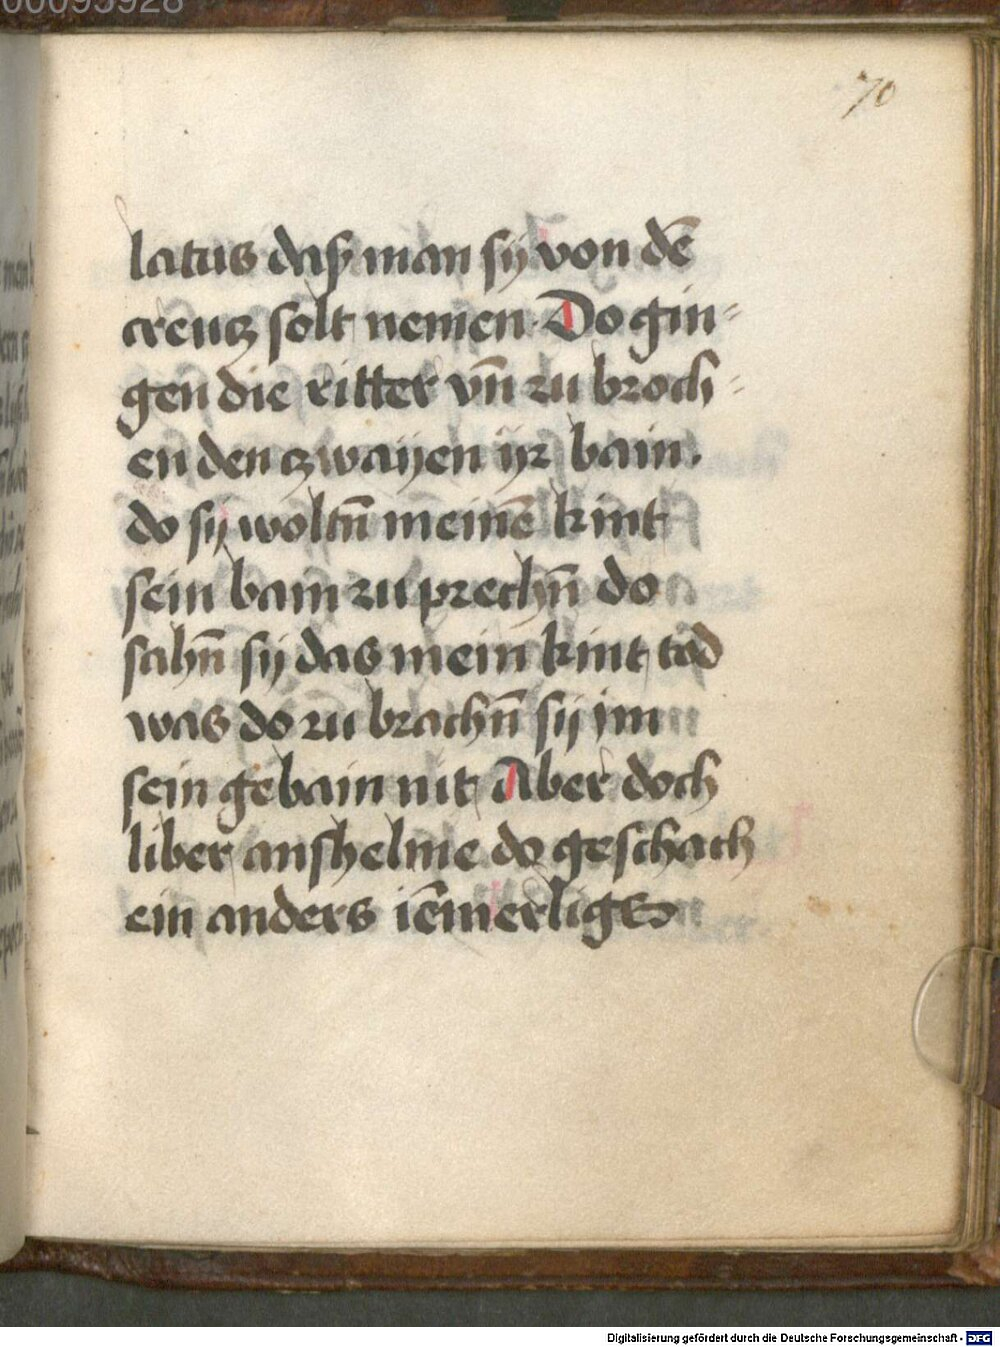 70
latus dasz man sÿ von dē
creucz solt nemen Do gin-
gen die ritter vn̄ zu broch-
en den czwaÿen ÿr bain.
do sÿ woltn̄ meinē kint
sein bain zu prechn̄ do
sahn̄ sÿ das mein kint tod
was do zu brachn̄ sÿ im
sein gebain nit Aber doch
liber anshelme do geschach
ein anders iēmerligs
Digitalisierung gefördert durch die Deutsche Forschungsgemeinschaft - DFG